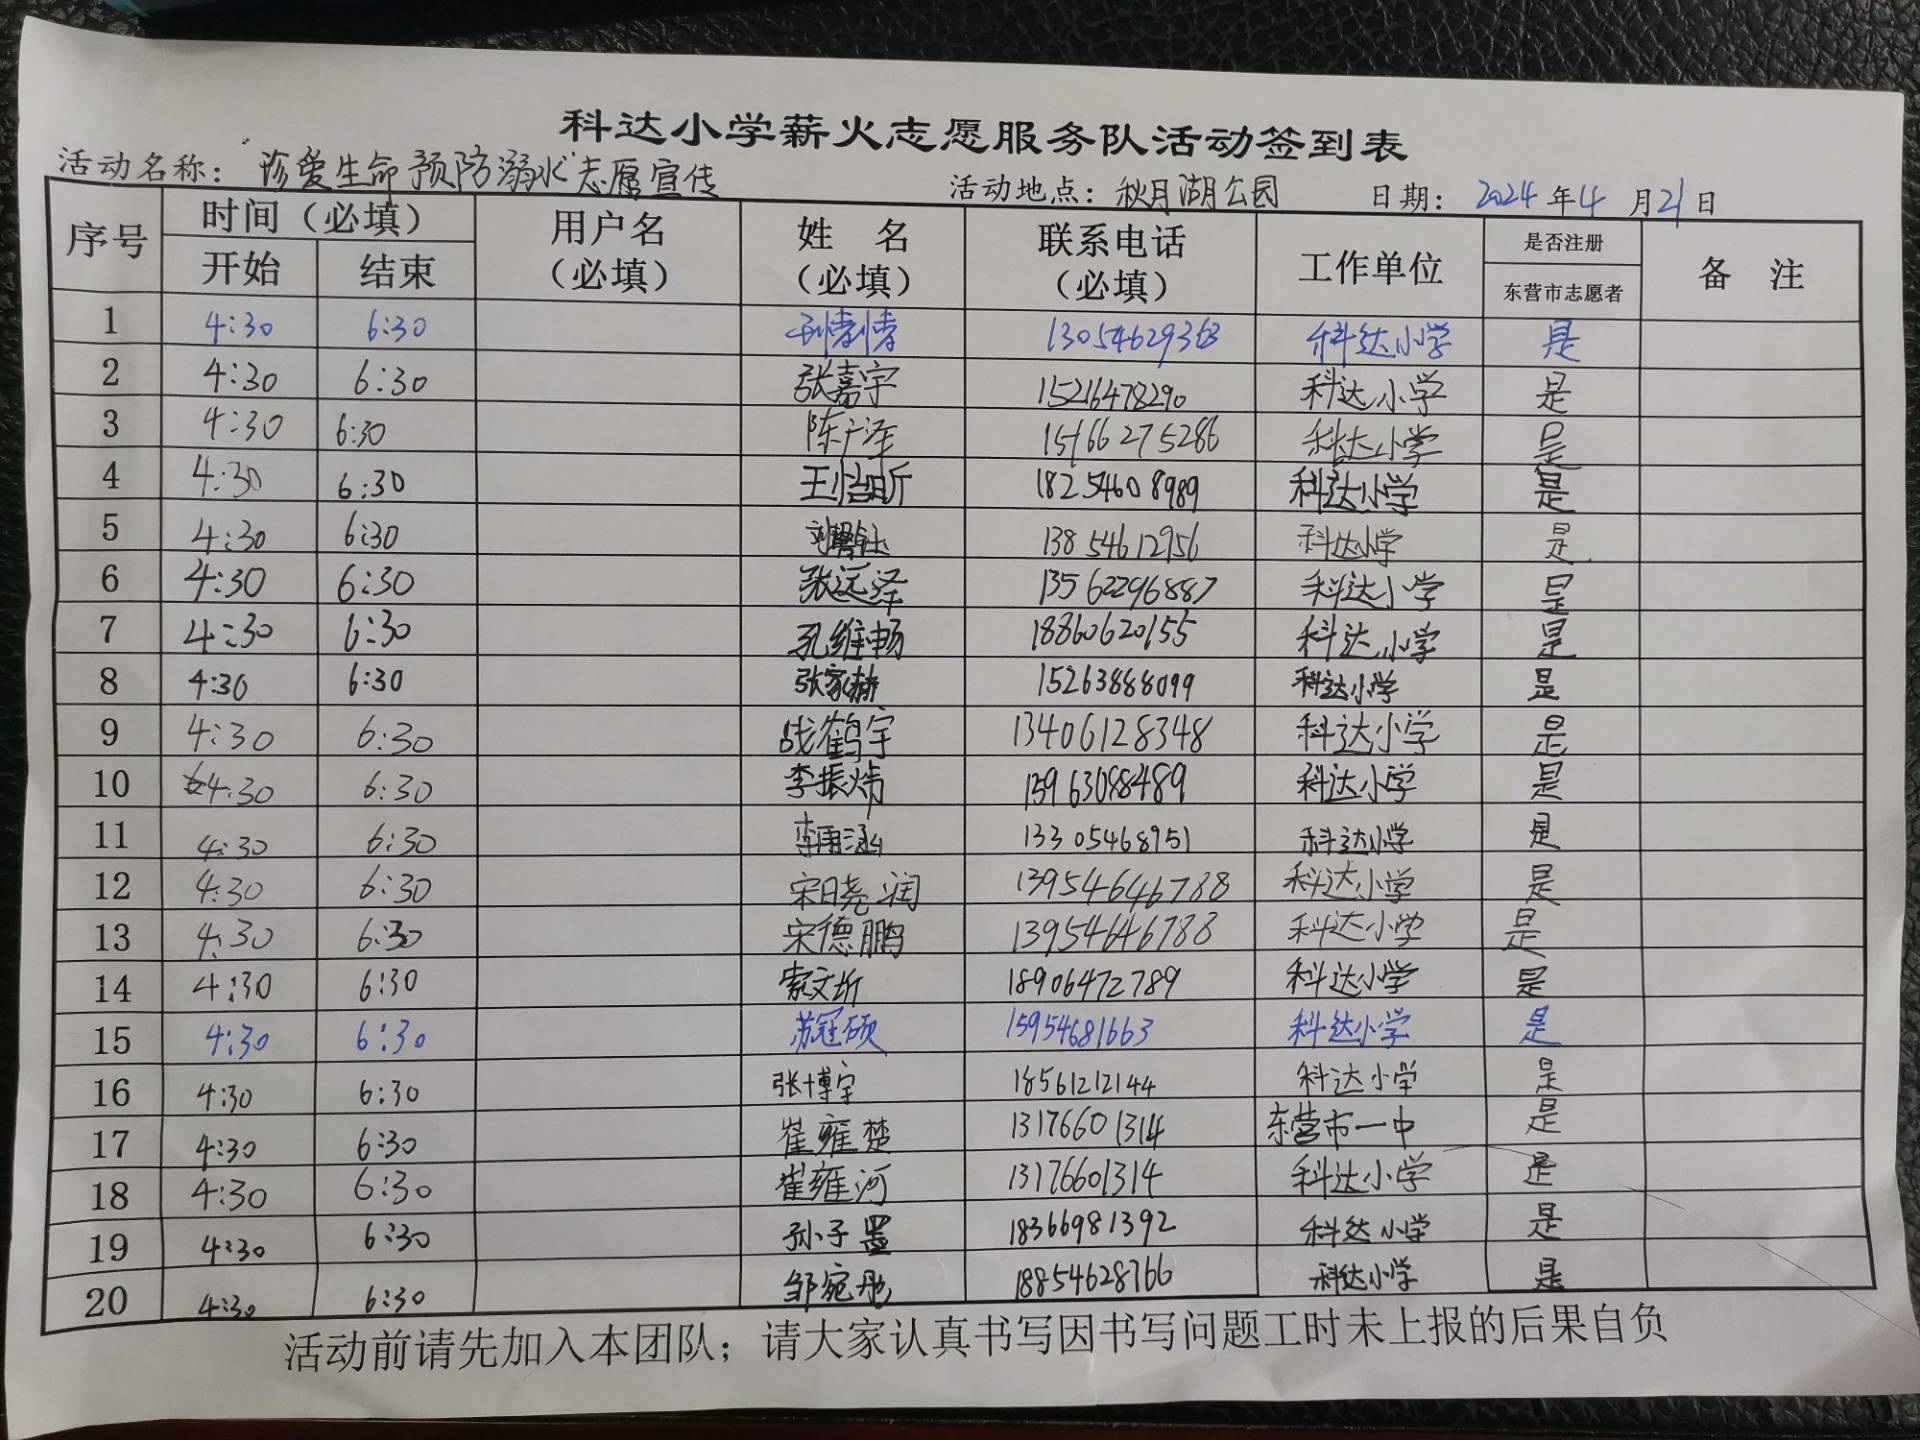 科达小学薪火志愿服务队活动签到表
活动名称："珍爱生命 预防溺水"志愿宣传 活动地点：秋月湖公园 日期：2024年4月21日
序号 时间（必填） 用户名（必填） 姓 名（必填） 联系电话（必填） 工作单位 是否注册 备 注
开始 结束 东营市志愿者
1 4:30 6:30 13054629363 科达小学 是
2 4:30 6:30 张嘉宇 15216478290 科达小学 是
3 4:30 6:30 陈广泽 15166275286 科达小学 是
4 4:30 6:30 王怡昕 18254608989 科达小学 是
5 4:30 6:30 13854612956 科达小学 是
6 4:30 6:30 张远泽 13562296887 科达小学 是
7 4:30 6:30 孔维畅 18860620155 科达小学 是
8 4:30 6:30 张家赫 15263888099 科达小学 是
9 4:30 6:30 战鹤宇 13406128348 科达小学 是
10 4:30 6:30 李振炜 13963088489 科达小学 是
11 4:30 6:30 李雨涵 13305468951 科达小学 是
12 4:30 6:30 宋晓润 13954646788 科达小学 是
13 4:30 6:30 宋德鹏 13954646788 科达小学 是
14 4:30 6:30 索文昕 18906472789 科达小学 是
15 4:30 6:30 苏冠硕 15954681663 科达小学 是
16 4:30 6:30 张博宇 18561212144 科达小学 是
17 4:30 6:30 崔雍楚 13176601314 东营市一中 是
18 4:30 6:30 崔雍河 13176601314 科达小学 是
19 4:30 6:30 孙子墨 18366981392 科达小学 是
20 4:30 6:30 邹宛彤 18854628766 科达小学 是
活动前请先加入本团队；请大家认真书写因书写问题工时未上报的后果自负